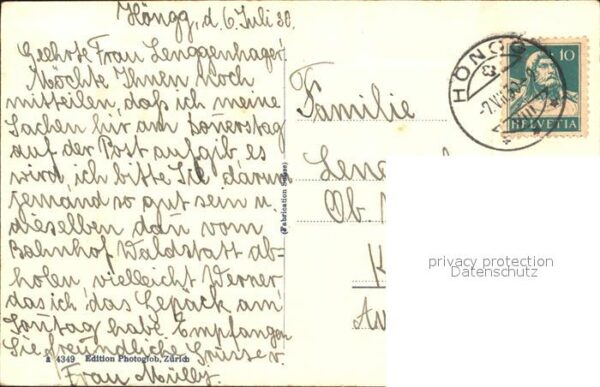 Höngg, d. 6. Juli 30.
Geehrte Frau Lenggenhager!
Möchte Ihnen noch
mitteilen, daß ich meine
Sachen hir am Donerstag
auf der Post aufgib, es
wird, ich bitte Sie darum
jemand so gut sein u.
dieselben dan vom
Bahnhof Waldstatt ab
holen, vielleicht Werner
das ich das Gepäck am
Sontag habe. Empfangen
Sie freundliche Grüsse v.
Frau Mülly.
4349 Edition Photoglob, Zürich
(Fabrication Suisse)
Familie
Ob.
HÖNGG
10
HELVETIA
privacy protection
Datenschutz